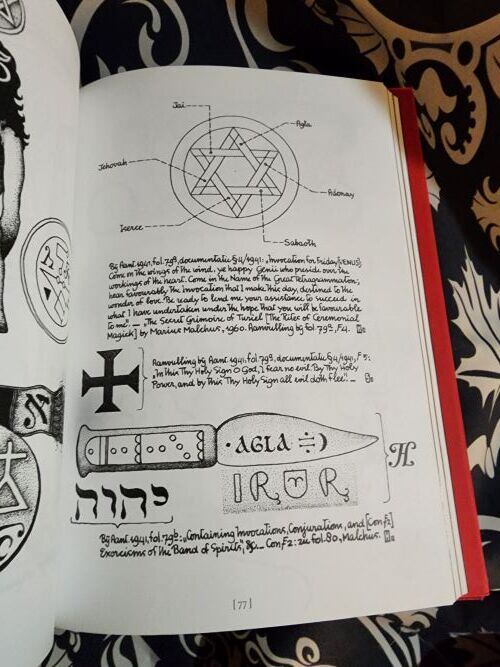 Jai
Agla
Jehovah
Adonay
Iserce
Sabaoth
Bij Aant. 1941, fol. 79ª, documentatie §4/1941: „Invocation for Friday [VENUS]:
Come on the wings of the wind, ye happy Genii who preside over the
workings of the heart. Come in the Name of the Great Tetragrammaton;
hear favourably the Invocation that I make this day, destined to the
wonder of love. Be ready to lend me your assistance to succeed in
what I have undertaken under the hope that you will be favourable
to me". _ „The Secret Grimoire of Turiel ["The Rites of Ceremonial
Magick] by Marius Malchus, 1960. Aanvulling bij fol. 79ª, F4.
Aanvulling bij Aant. 1941, fol. 79ª, documentatie §4/1941, F5:
„In this Thy Holy Sign O God, I fear no evil. By Thy Holy
Power, and by this Thy Holy Sign all evil doth flee". _
· AGLA
H
יהוה
Bij Aant. 1941, fol. 79ª: „Containing Invocations, Conjurations, and [Con. F2]
Exorcisms of the Band of Spirits", _ Con. F2: zu fol. 80, Malchus.
[77]